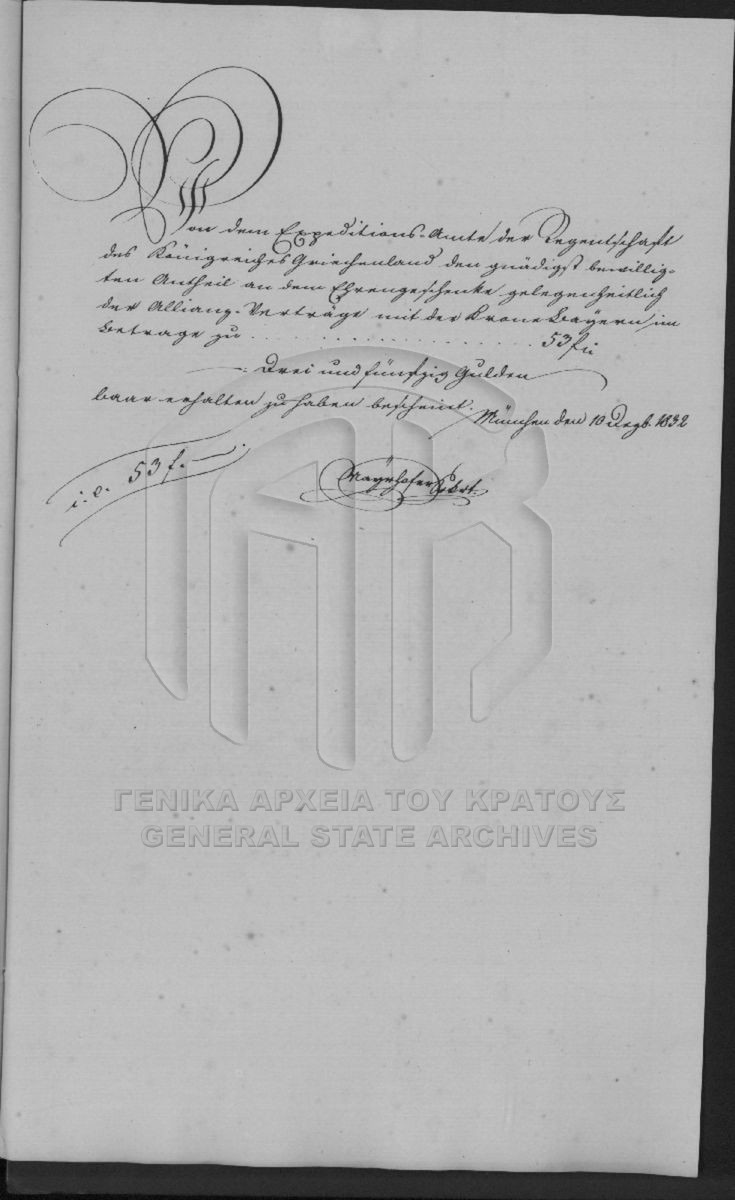 Von dem Expeditions-Amte der Regentschaft
des Königreiches Griechenland den gnädigst bewillig-
ten Antheil an dem Ehrengeschenke gelegenheitlich
der Allianz-Verträge mit der Krone Bayern im
Betrage zu . . . . . . . . . . . . . . . . . . 53 f
Drei und fünfzig Gulden
baar erhalten zu haben bescheint.
München den 10 Dezb. 1832
i. e. 53 f.
Mayrhofer
ΓΕΝΙΚΑ ΑΡΧΕΙΑ ΤΟΥ ΚΡΑΤΟΥΣ
GENERAL STATE ARCHIVES